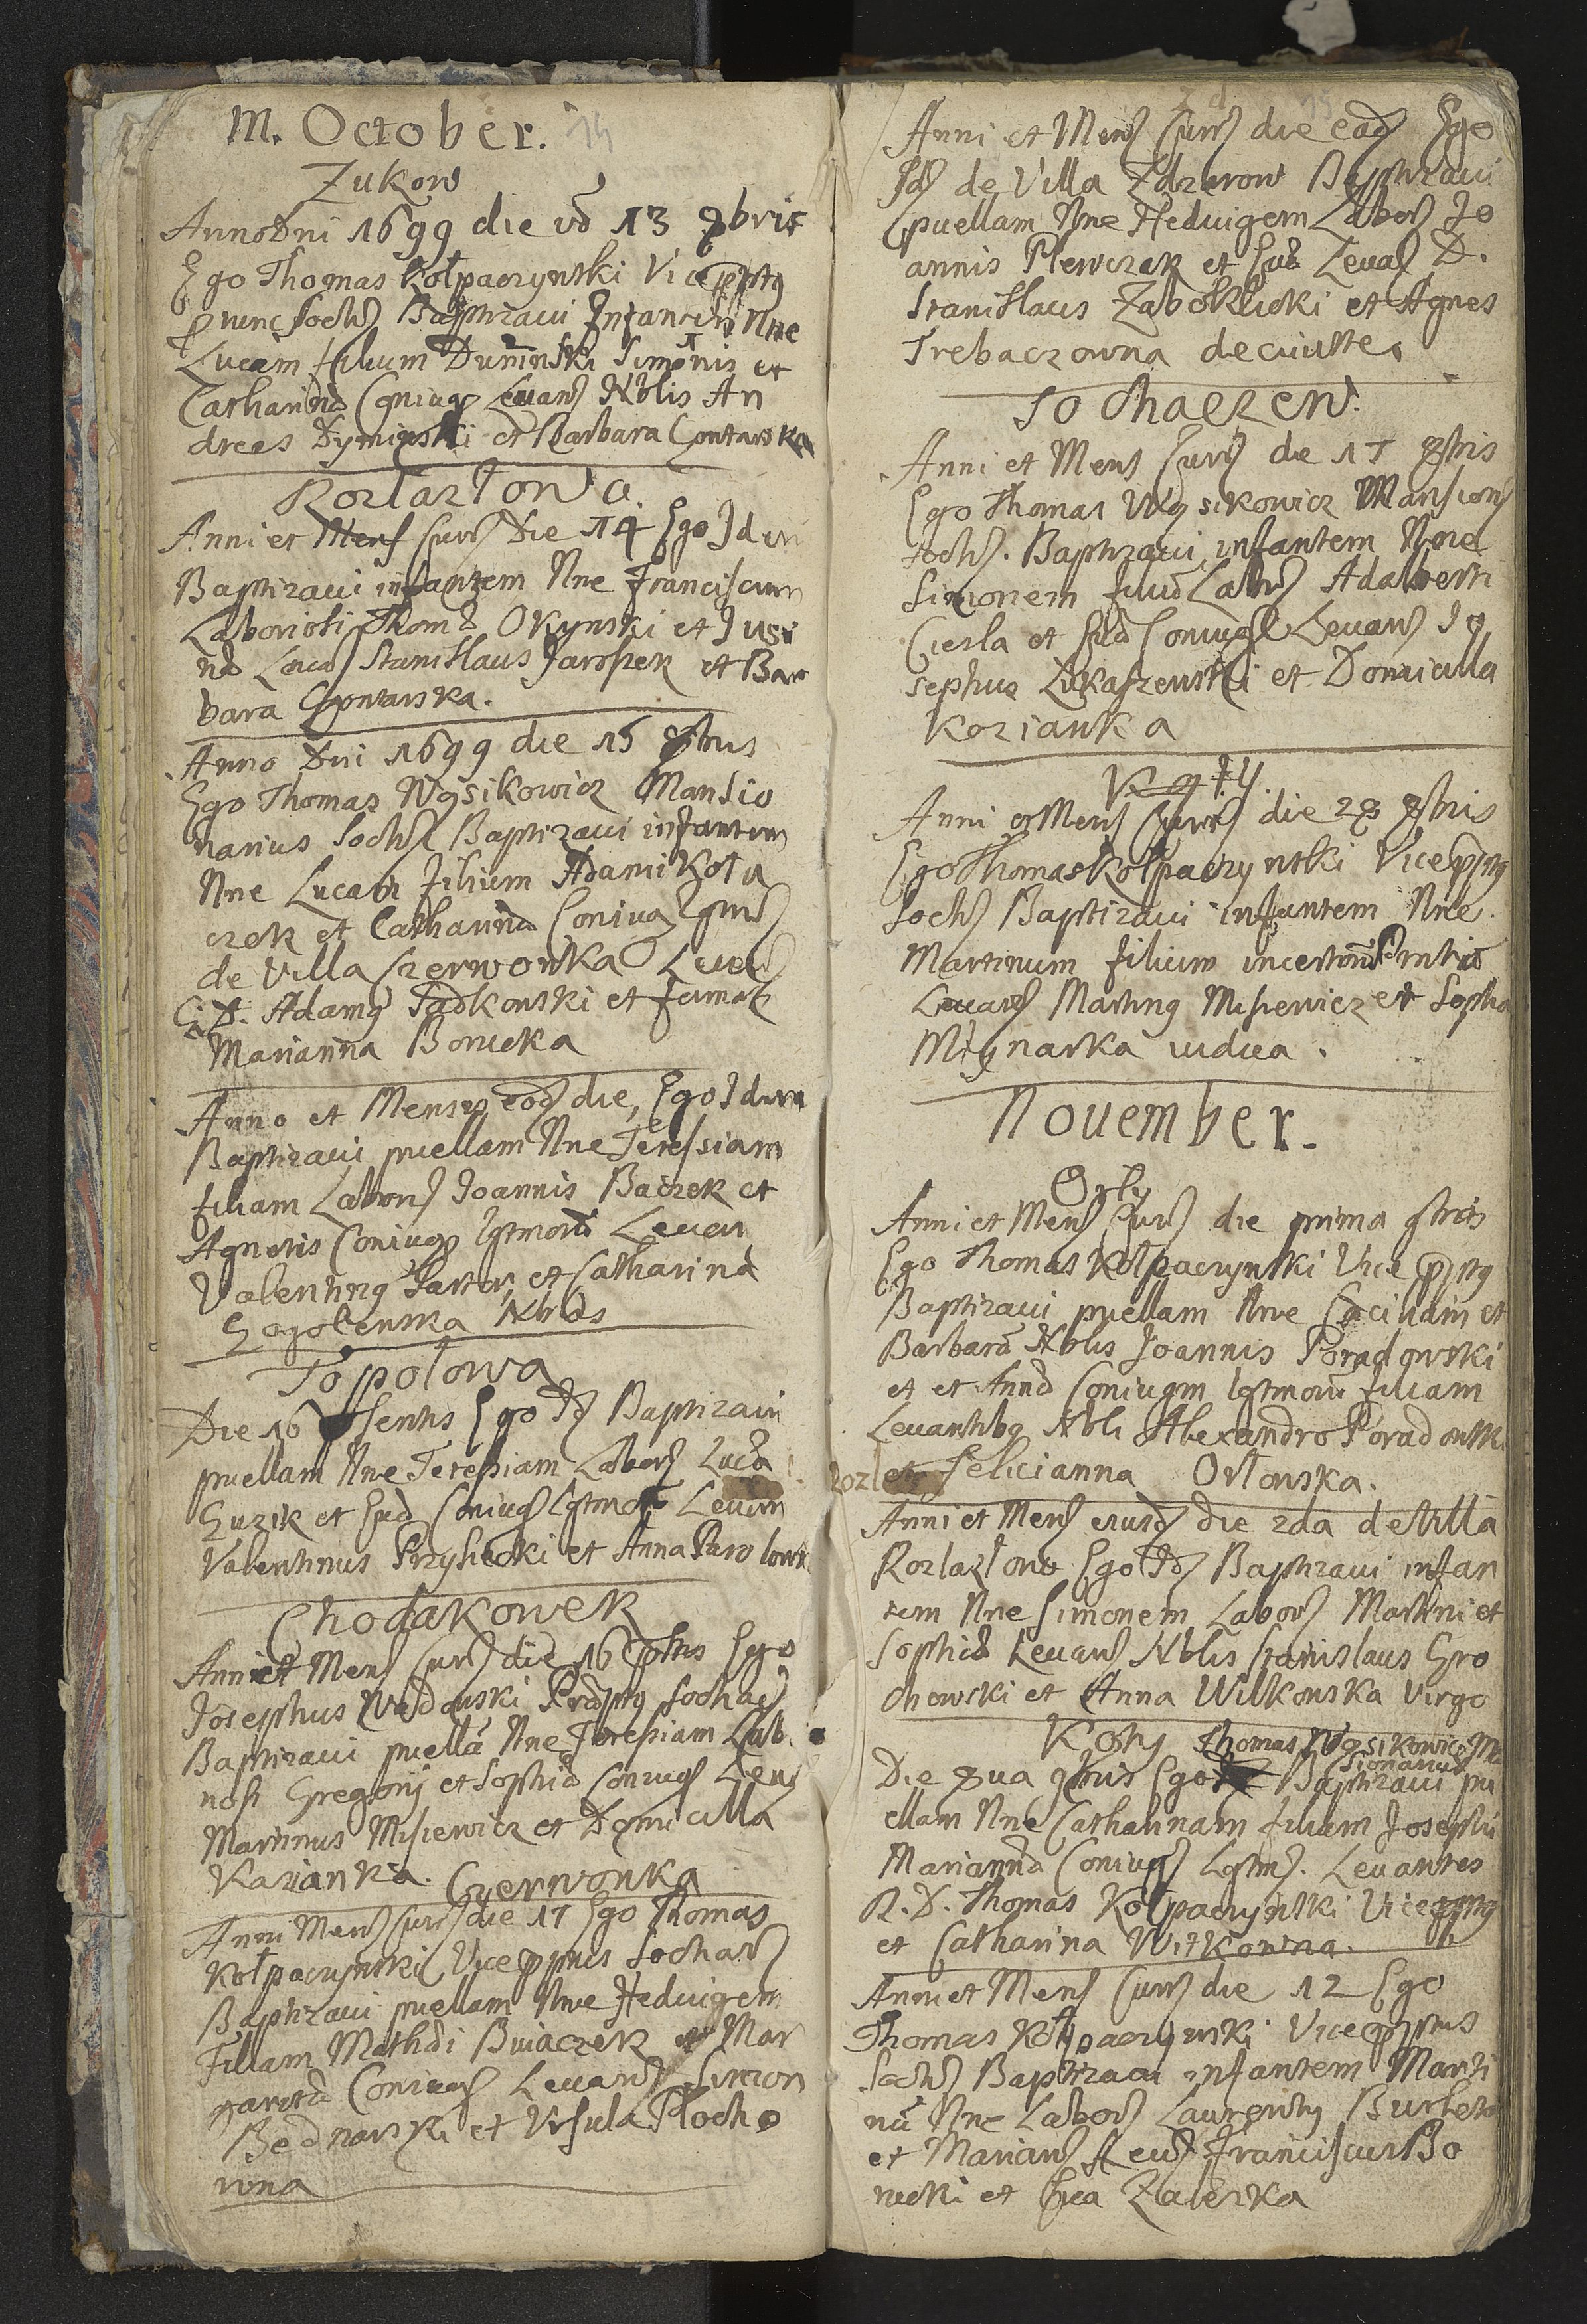 M. October.
Zukow
Anno Dni 1699 die vo 13 8bris
Ego Thomas Kołpaczynski Vicepptg
Baptizaui Infantem Nne
Lucam filium Duminski Simonis et
Catharina Coniug Leuan Nblis An
dreas Dyminski et Barbara Gontarska
Rozlazłowa.
Anni et Mens Curr Die 14 Ego Idem
Baptizaui infantem Nne Franciscum
Laboriosi Thoma Okynski et Justi
na Leua Stanislaus Jaroszek et Bar
bara Gontarska.
Anno Dni 1699 die 15 8bris
Ego Thomas Wąsikowicz Mansio
narius Soch Baptizaui infantem
Nne Lucam filium Adami Kołu
czek et Catharina Coniug lgtmor
de Villa Czerwonka Leua
G. D. Adamg Sadkowski et famata
Marianna Borucka
Anno et Mensis eod die, Ego Idem
Baptizaui puellam Nne Teressiam
filiam Labors Joannis Baczek et
Agnetis Coniug lgtmoru Leuan
Valenting Sartor, et Catharina
Gogolewska Nblis
Topołowa
Die 16 Ego Id Baptizaui
puellam Nne Teressiam Labors Luca
Guzik et Eud Coniug Lgtmor Leuan
Valentinus Przysiecki et Anna Pawlow
Chodakowek
Anni et Mens Curr die 16 8bris Ego
Josephus Wadowski Prapptg Sochac
Baptizaui puella Nne Teressiam Labo
riosi Gregorij et Sophia Coniug Leua
Martinus Misiewicz et Domicilla
Kazianka. Czerwonka
Anni Mens Curr die 17 Ego Thomas
Kołpaczynski Vicepptus Sochac
Baptizaui puellam Nne Heduigem
Filiam Mathai Buiaczek et Mar
gareta Coniug Leuan Simon
Bednarski et Vrsula Płocho
wna
Anni et Mens Curr die ead Ego
Id de Villa Zdzarow Baptizaui
puellam Nne Heduigem Labors Jo
annis Plewczek et Eua Leua D.
Stanislaus Zaboklicki et Agnes
Trebaczowna deciuitte
Sochaczew.
Anni et Mens Curr die 17 8bris
Ego Thomas Wąsikowicz Mansion
Soch. Baptizaui infantem Nne
Simonem filiu Labors Adalberti
Ciesla et Eua Coniug Leuan Jo
sephus Lukaszewski et Domicilla
Kozianka
Kąty
Anni et Mens Curr die 28 8bris
Ego Thomas Kołpaczynski Vicepptg
Soch Baptizaui infantem Nne
Martinum filium incertoru
Leuan Marting Misiewicz et Sophia
Mlynarka vidua.
November.
Orły
Anni et Mens Curr die prima 9bris
Ego Thomas Kołpaczynski Vicepptg
Baptizaui puellam Nne Caciliam et
Barbara Nblis Joannis Poradowski
et et Anna Coniugm lgtmoru filiam
Leuantibg Nbli Alexandro Poradowski
et Felicianna Orłowska.
Anni et Mens eiusd die 2da de Villa
Rozlazłow Ego Id Baptizaui infan
tem Nne Simonem Labors Martini et
Sophia Leuan Nblis Stanislaus Gro
chowski et Anna Wilkowska Virgo
Kąty Thomas Wąsikowicz Man
sionarius
Die 9bris Ego Baptizaui pu
ellam Nne Catharinam filiam Josephi
Marianna Coniug Lgtm. Leuantes
R. D. Thomas Kołpaczynski Vicepptg
et Catharina Witkowna.
Anni et Mens Curr die 12 Ego
Thomas Kołpaczynski Viceppptus
Soch Baptizaui infantem Marti
nu Nne Labors Laurentij
et Marian Leua Franciscus Bo
rucki et Eua Zaleska